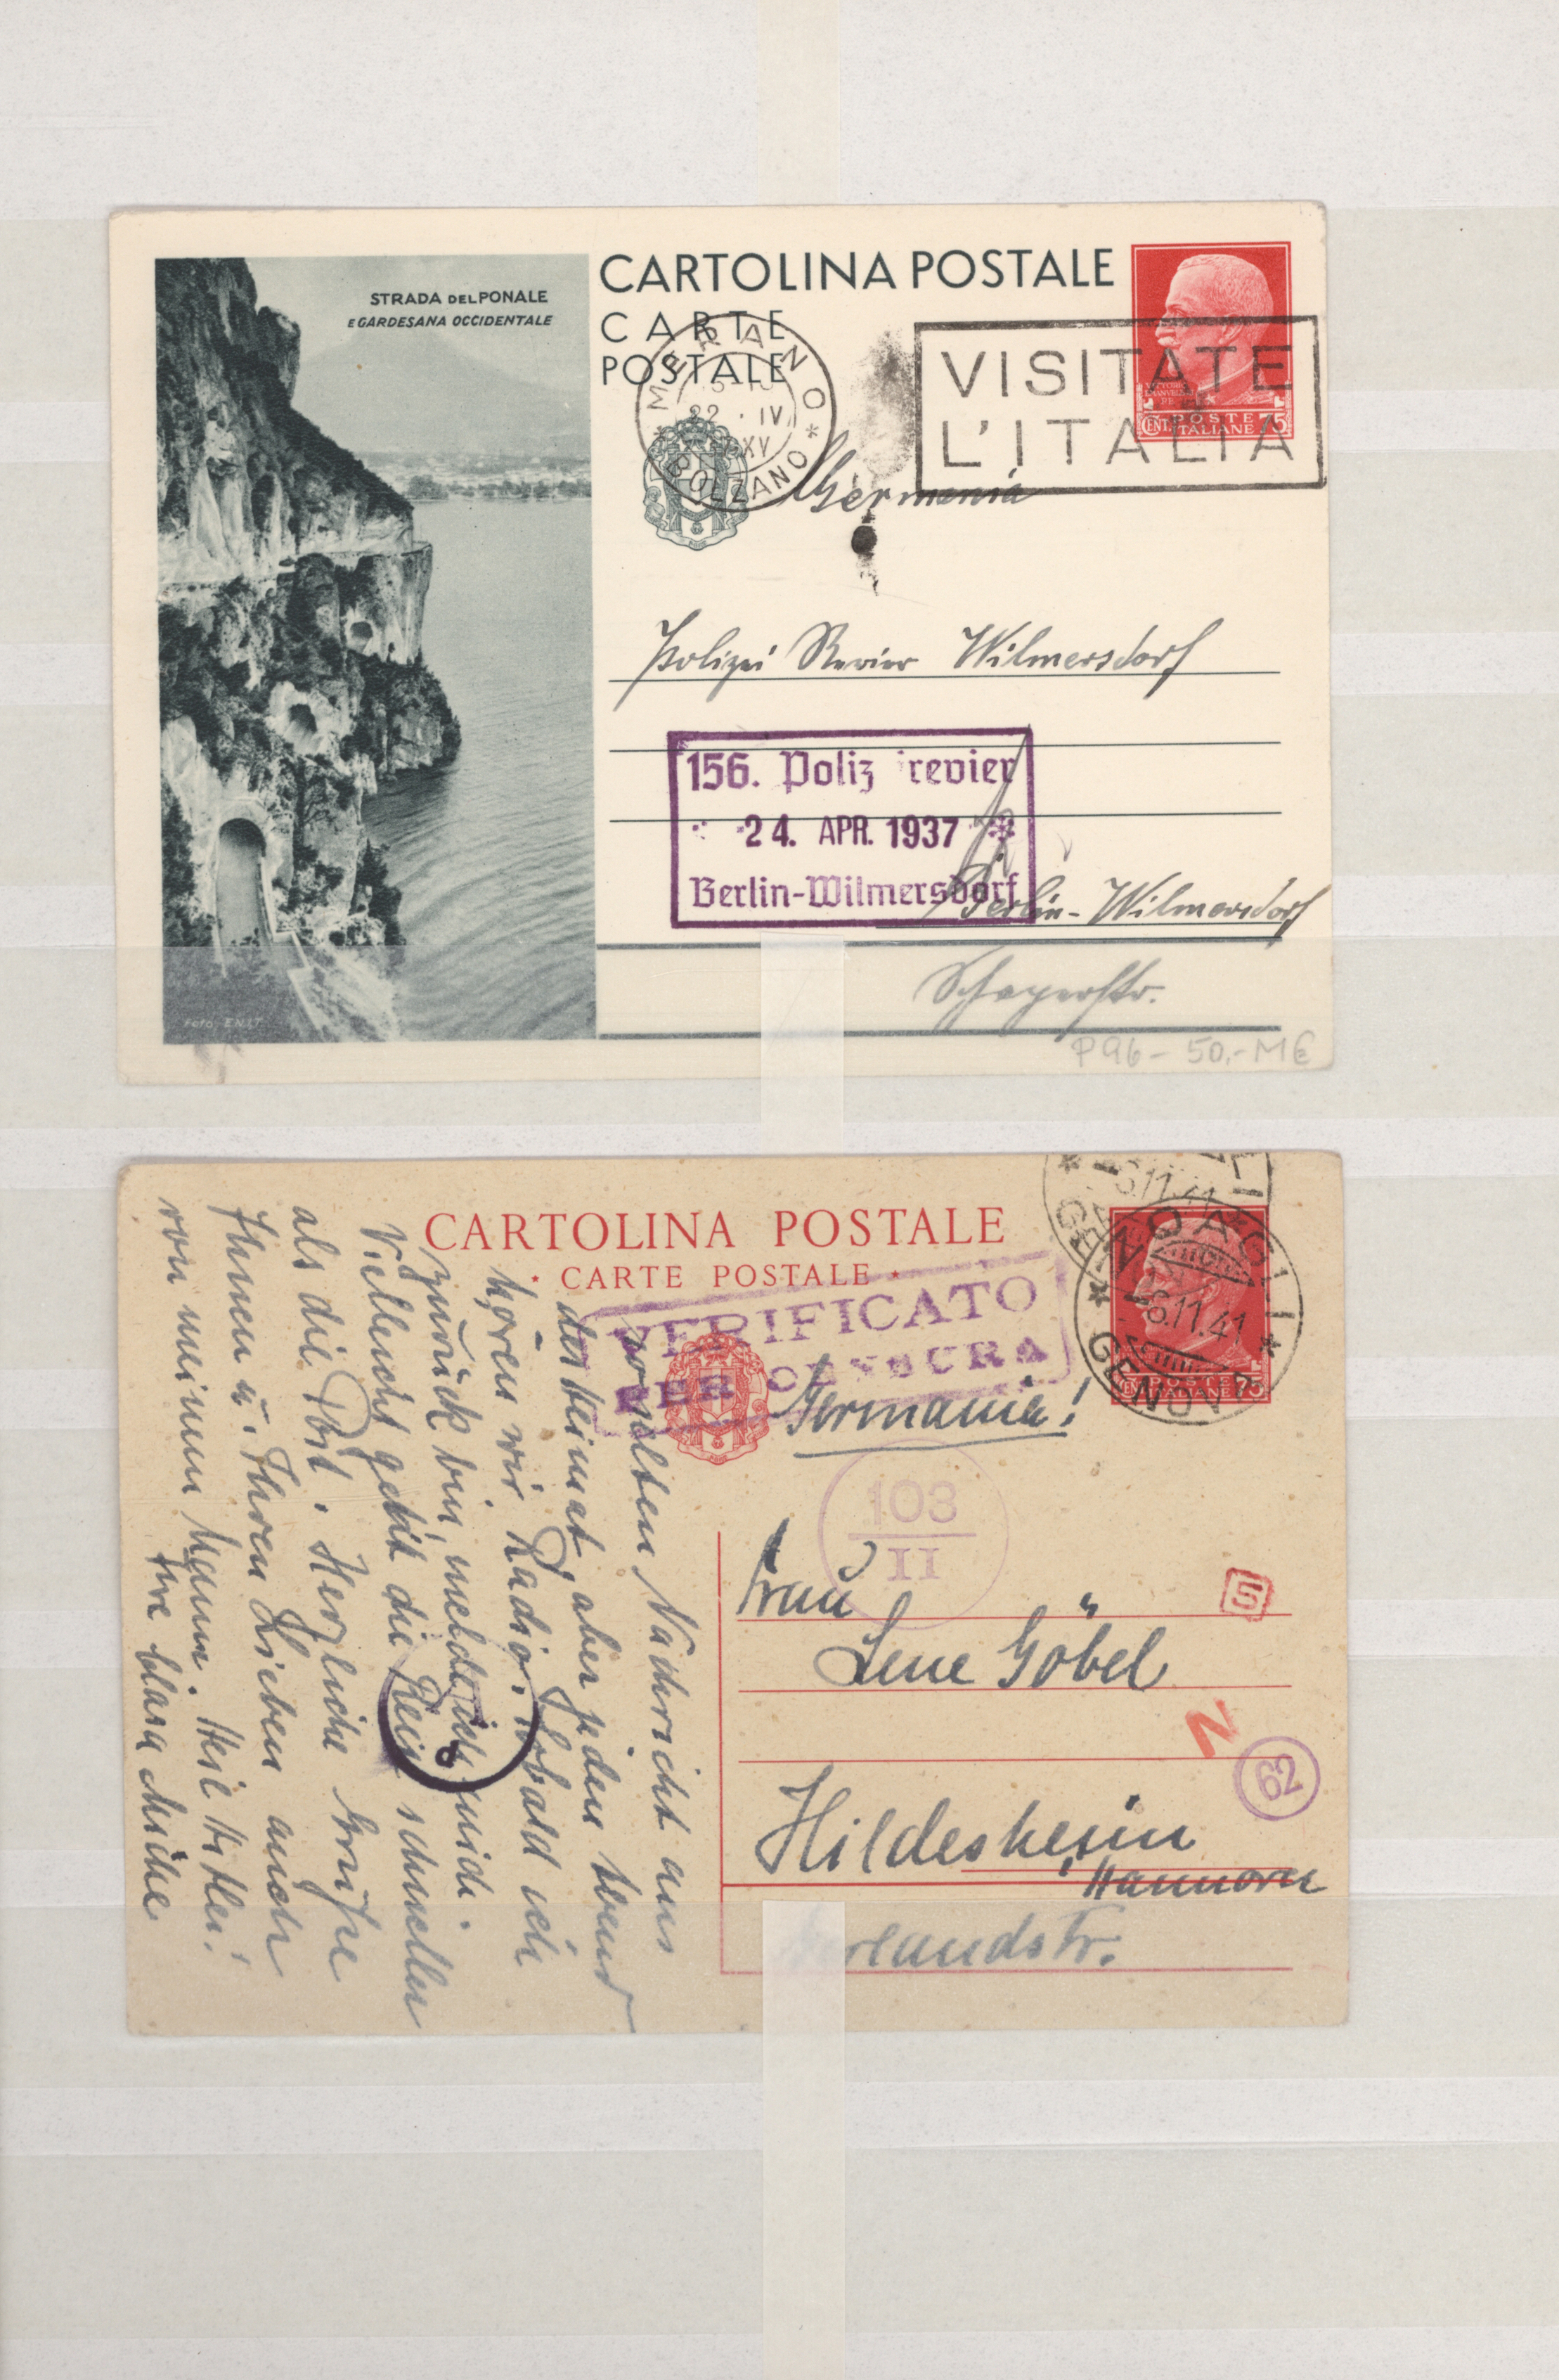 STRADA DEL PONALE
E GARDESANA OCCIDENTALE
Foto ENIT
CARTOLINA POSTALE
CARTE
POSTALE
MERANO
22 · IV
XV
* BOLZANO *
VISITATE
L'ITALIA
VITTORIO
EMANUELE
RE
POSTE
CENT. ITALIANE 75
Germania
Polizei Revier Wilmersdorf
156. Poliz revier
24. APR. 1937
Berlin-Wilmersdorf
Berlin-Wilmersdorf
Schaperstr.
P96- 50,- M€
CARTOLINA POSTALE
* CARTE POSTALE *
VERIFICATO
PER CENSURA
ZOAGLI
6.11.41
* GENOVA *
POSTE
CENT. ITALIANE 75
Germania!
103
II
Frau
Lene Göbel
S
N
62
Hildesheim
Hannover
rlandstr.
wollten Nachricht aus
der Heimat, aber jeden Abend
hören wir Radio. Sobald ich
zurück bin, melde ich mich.
Vielleicht geht die Reise schneller
als die Post. Herzliche Grüße
Ihnen u. Ihren Lieben auch
von meinem Mann. Heil Hitler!
Ihre Clara